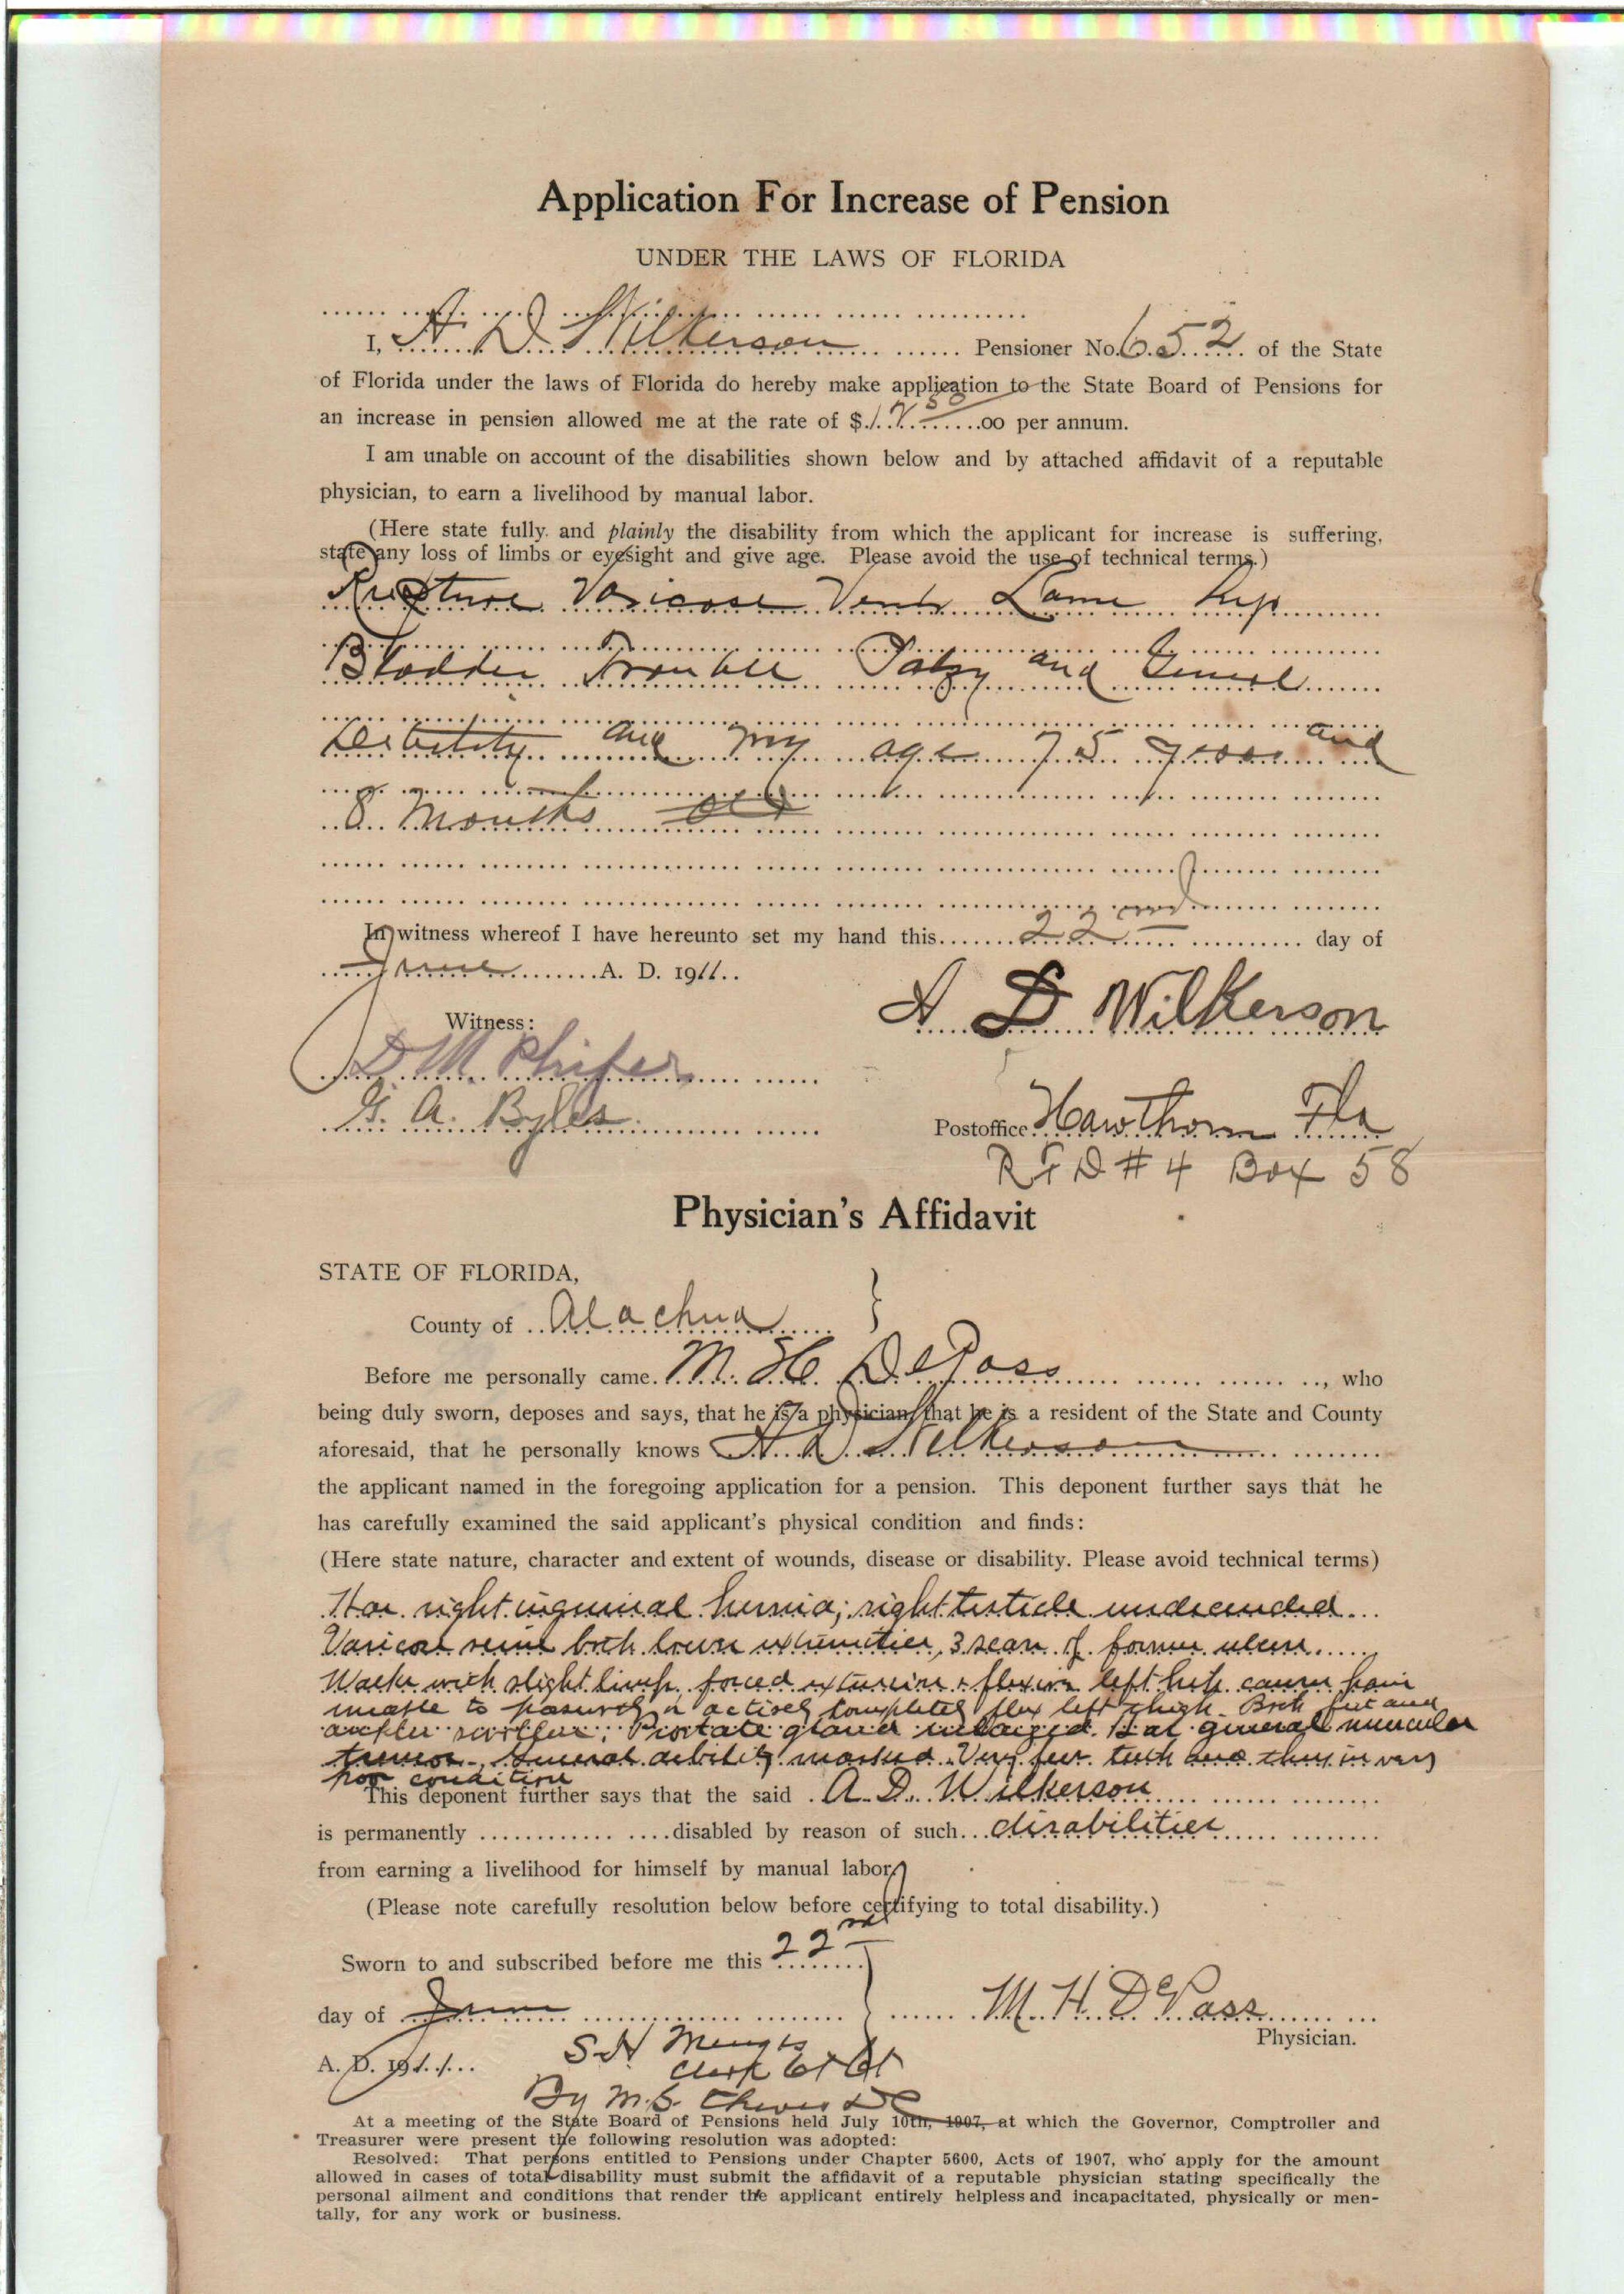 Application For Increase of Pension
UNDER THE LAWS OF FLORIDA
I, A. D. Wilkerson Pensioner No. 652 of the State
of Florida under the laws of Florida do hereby make application to the State Board of Pensions for
an increase in pension allowed me at the rate of $ .00 per annum.
I am unable on account of the disabilities shown below and by attached affidavit of a reputable
physician, to earn a livelihood by manual labor.
(Here state fully and plainly the disability from which the applicant for increase is suffering,
state any loss of limbs or eyesight and give age. Please avoid the use of technical terms.)
Rupture Varicose Lame hip
Bladder Trouble Palsy and
Debility and my age 75 years and
8 months old
In witness whereof I have hereunto set my hand this 22nd day of
June A. D. 1911
A D Wilkerson
Witness:
D. M. Phifer
G. A. Byles
Postoffice Hawthorn Fla
R F D # 4 Box 58
Physician's Affidavit
STATE OF FLORIDA,
County of Alachua }
Before me personally came M. H. DePass, who
being duly sworn, deposes and says, that he is a physician, that he is a resident of the State and County
aforesaid, that he personally knows A. D. Wilkerson
the applicant named in the foregoing application for a pension. This deponent further says that he
has carefully examined the said applicant's physical condition and finds:
(Here state nature, character and extent of wounds, disease or disability. Please avoid technical terms)
Has right inguinal hernia; right testicle undescended
Varicose veins both lower extremities, 3 scars of former ulcers
Walks with slight limp, forced extension & flexion left hip causes pain
unable to passively or actively completely flex left thigh. Both feet and
ankles swollen. Prostate gland enlarged. Has general muscular
tremor. General debility marked. Very few teeth and they in very
poor condition
This deponent further says that the said A. D. Wilkerson
is permanently disabled by reason of such disabilities
from earning a livelihood for himself by manual labor.
(Please note carefully resolution below before certifying to total disability.)
Sworn to and subscribed before me this 22nd
day of June
M. H. DePass
Physician.
A. D. 1911
S H
Clerk Ct Ct
By M. S. DC
At a meeting of the State Board of Pensions held July 10th, 1907, at which the Governor, Comptroller and
Treasurer were present the following resolution was adopted:
Resolved: That persons entitled to Pensions under Chapter 5600, Acts of 1907, who apply for the amount
allowed in cases of total disability must submit the affidavit of a reputable physician stating specifically the
personal ailment and conditions that render the applicant entirely helpless and incapacitated, physically or men-
tally, for any work or business.